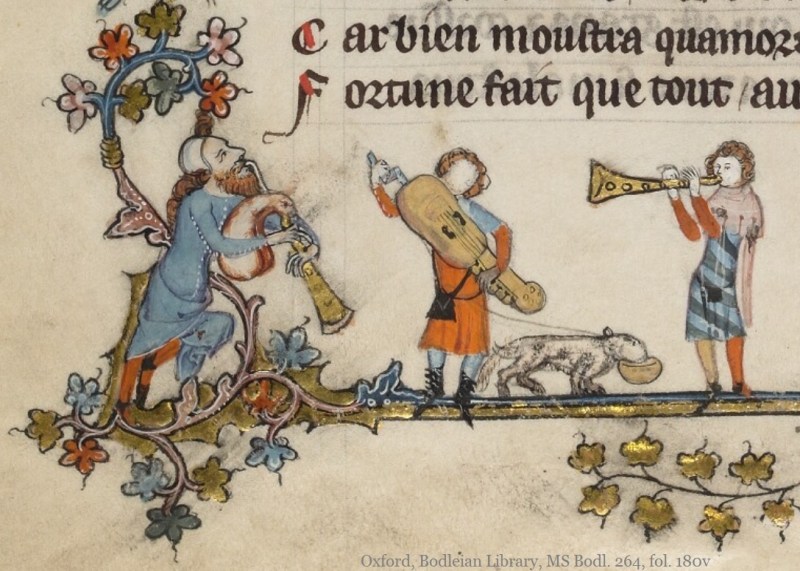 Car bien moustra quamors
Fortune fait que tout au
Oxford, Bodleian Library, MS Bodl. 264, fol. 180v